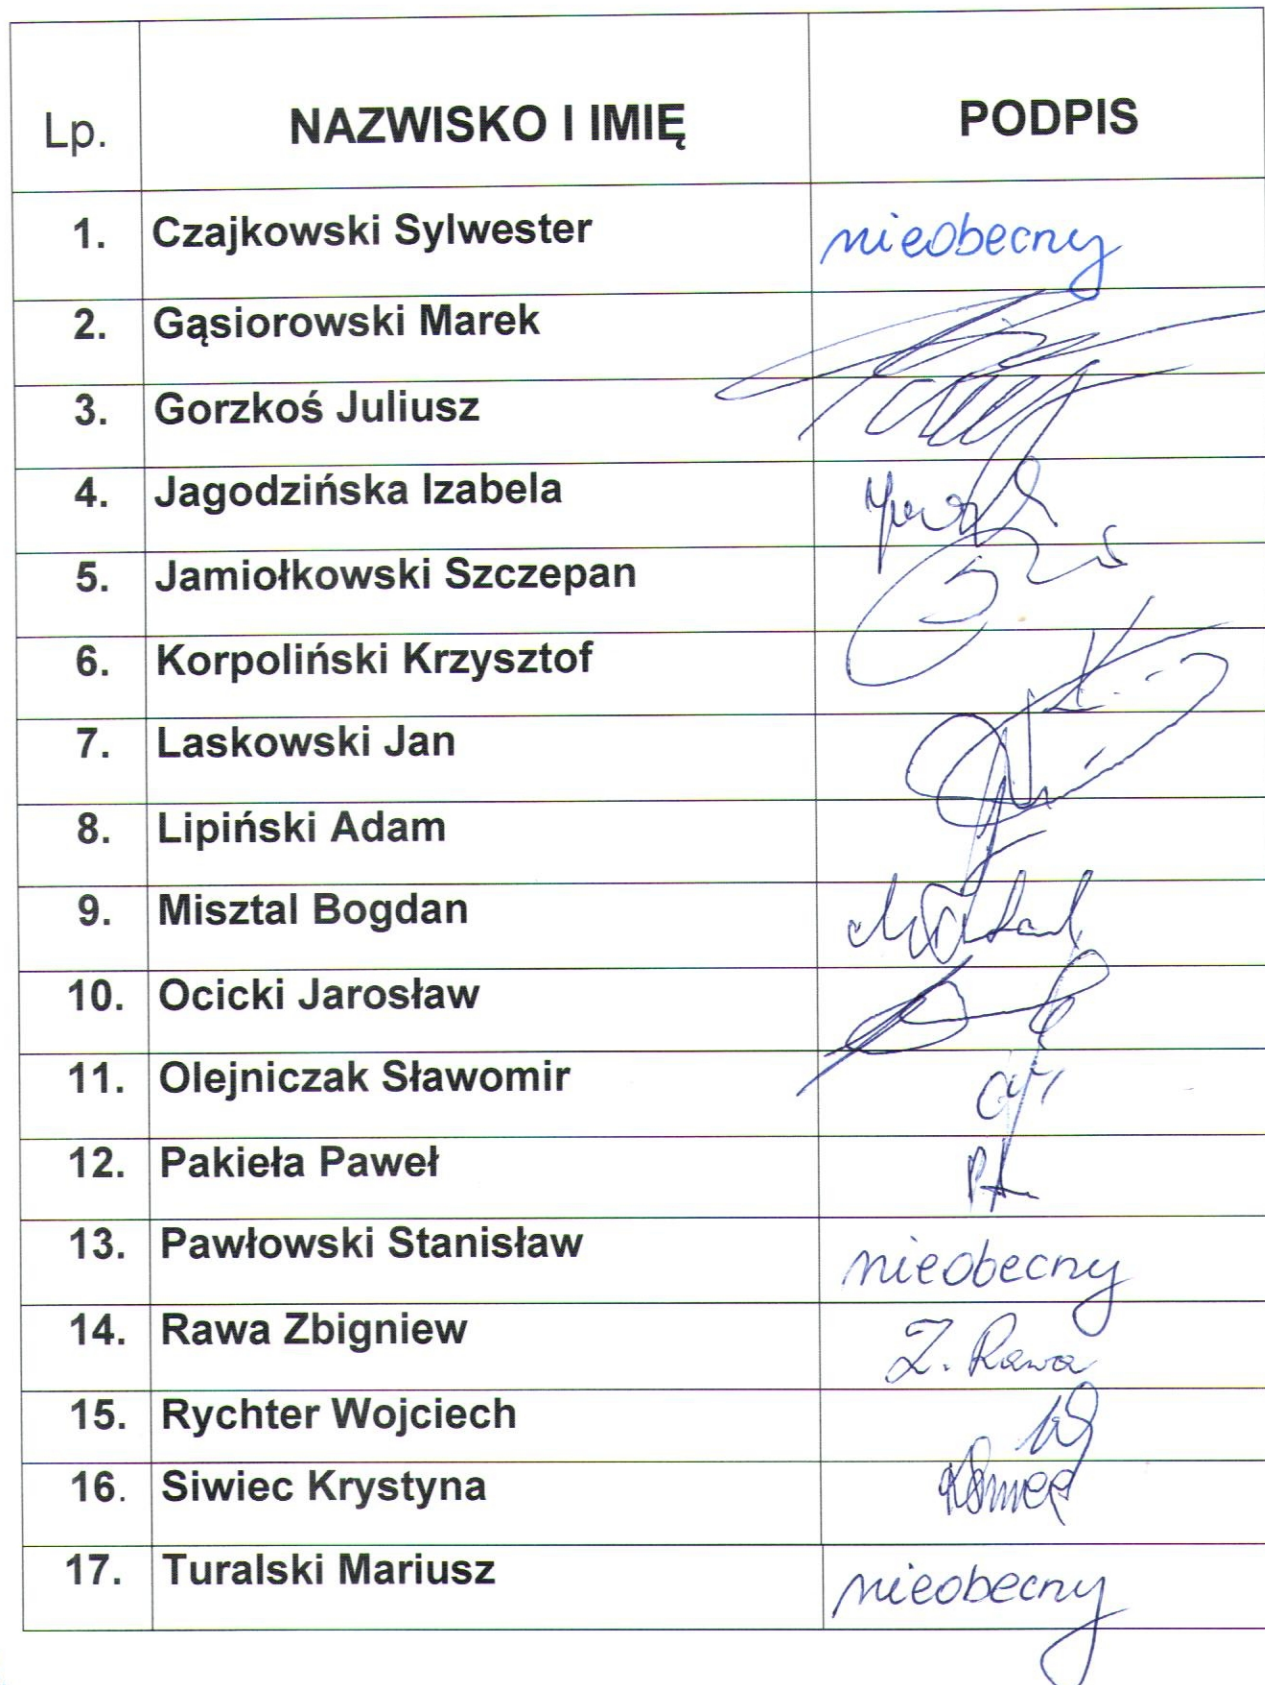 Lp. NAZWISKO I IMIĘ PODPIS
1. Czajkowski Sylwester nieobecny
2. Gąsiorowski Marek
3. Gorzkoś Juliusz
4. Jagodzińska Izabela
5. Jamiołkowski Szczepan
6. Korpoliński Krzysztof
7. Laskowski Jan
8. Lipiński Adam
9. Misztal Bogdan
10. Ocicki Jarosław
11. Olejniczak Sławomir
12. Pakieła Paweł
13. Pawłowski Stanisław nieobecny
14. Rawa Zbigniew Z. Rawa
15. Rychter Wojciech
16. Siwiec Krystyna
17. Turalski Mariusz nieobecny